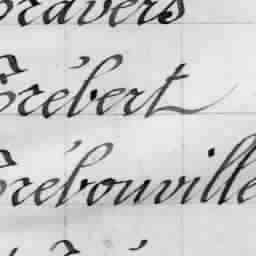 Travers
Trébert
Trébouville